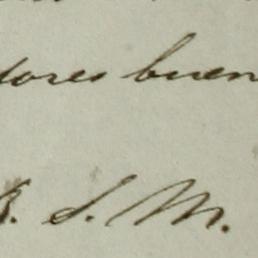 dores buen
B. S. M.